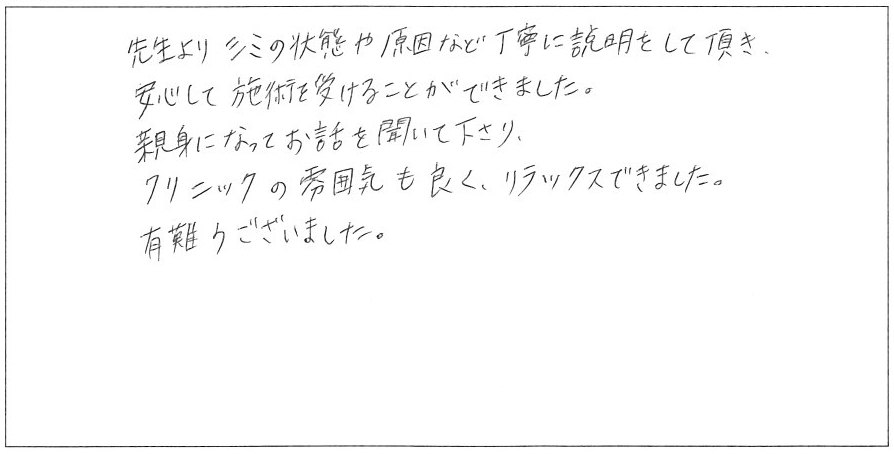 先生よりシミの状態や原因など丁寧に説明をして頂き、
安心して施術を受けることができました。
親身になってお話を聞いて下さり、
クリニックの雰囲気も良く、リラックスできました。
有難うございました。